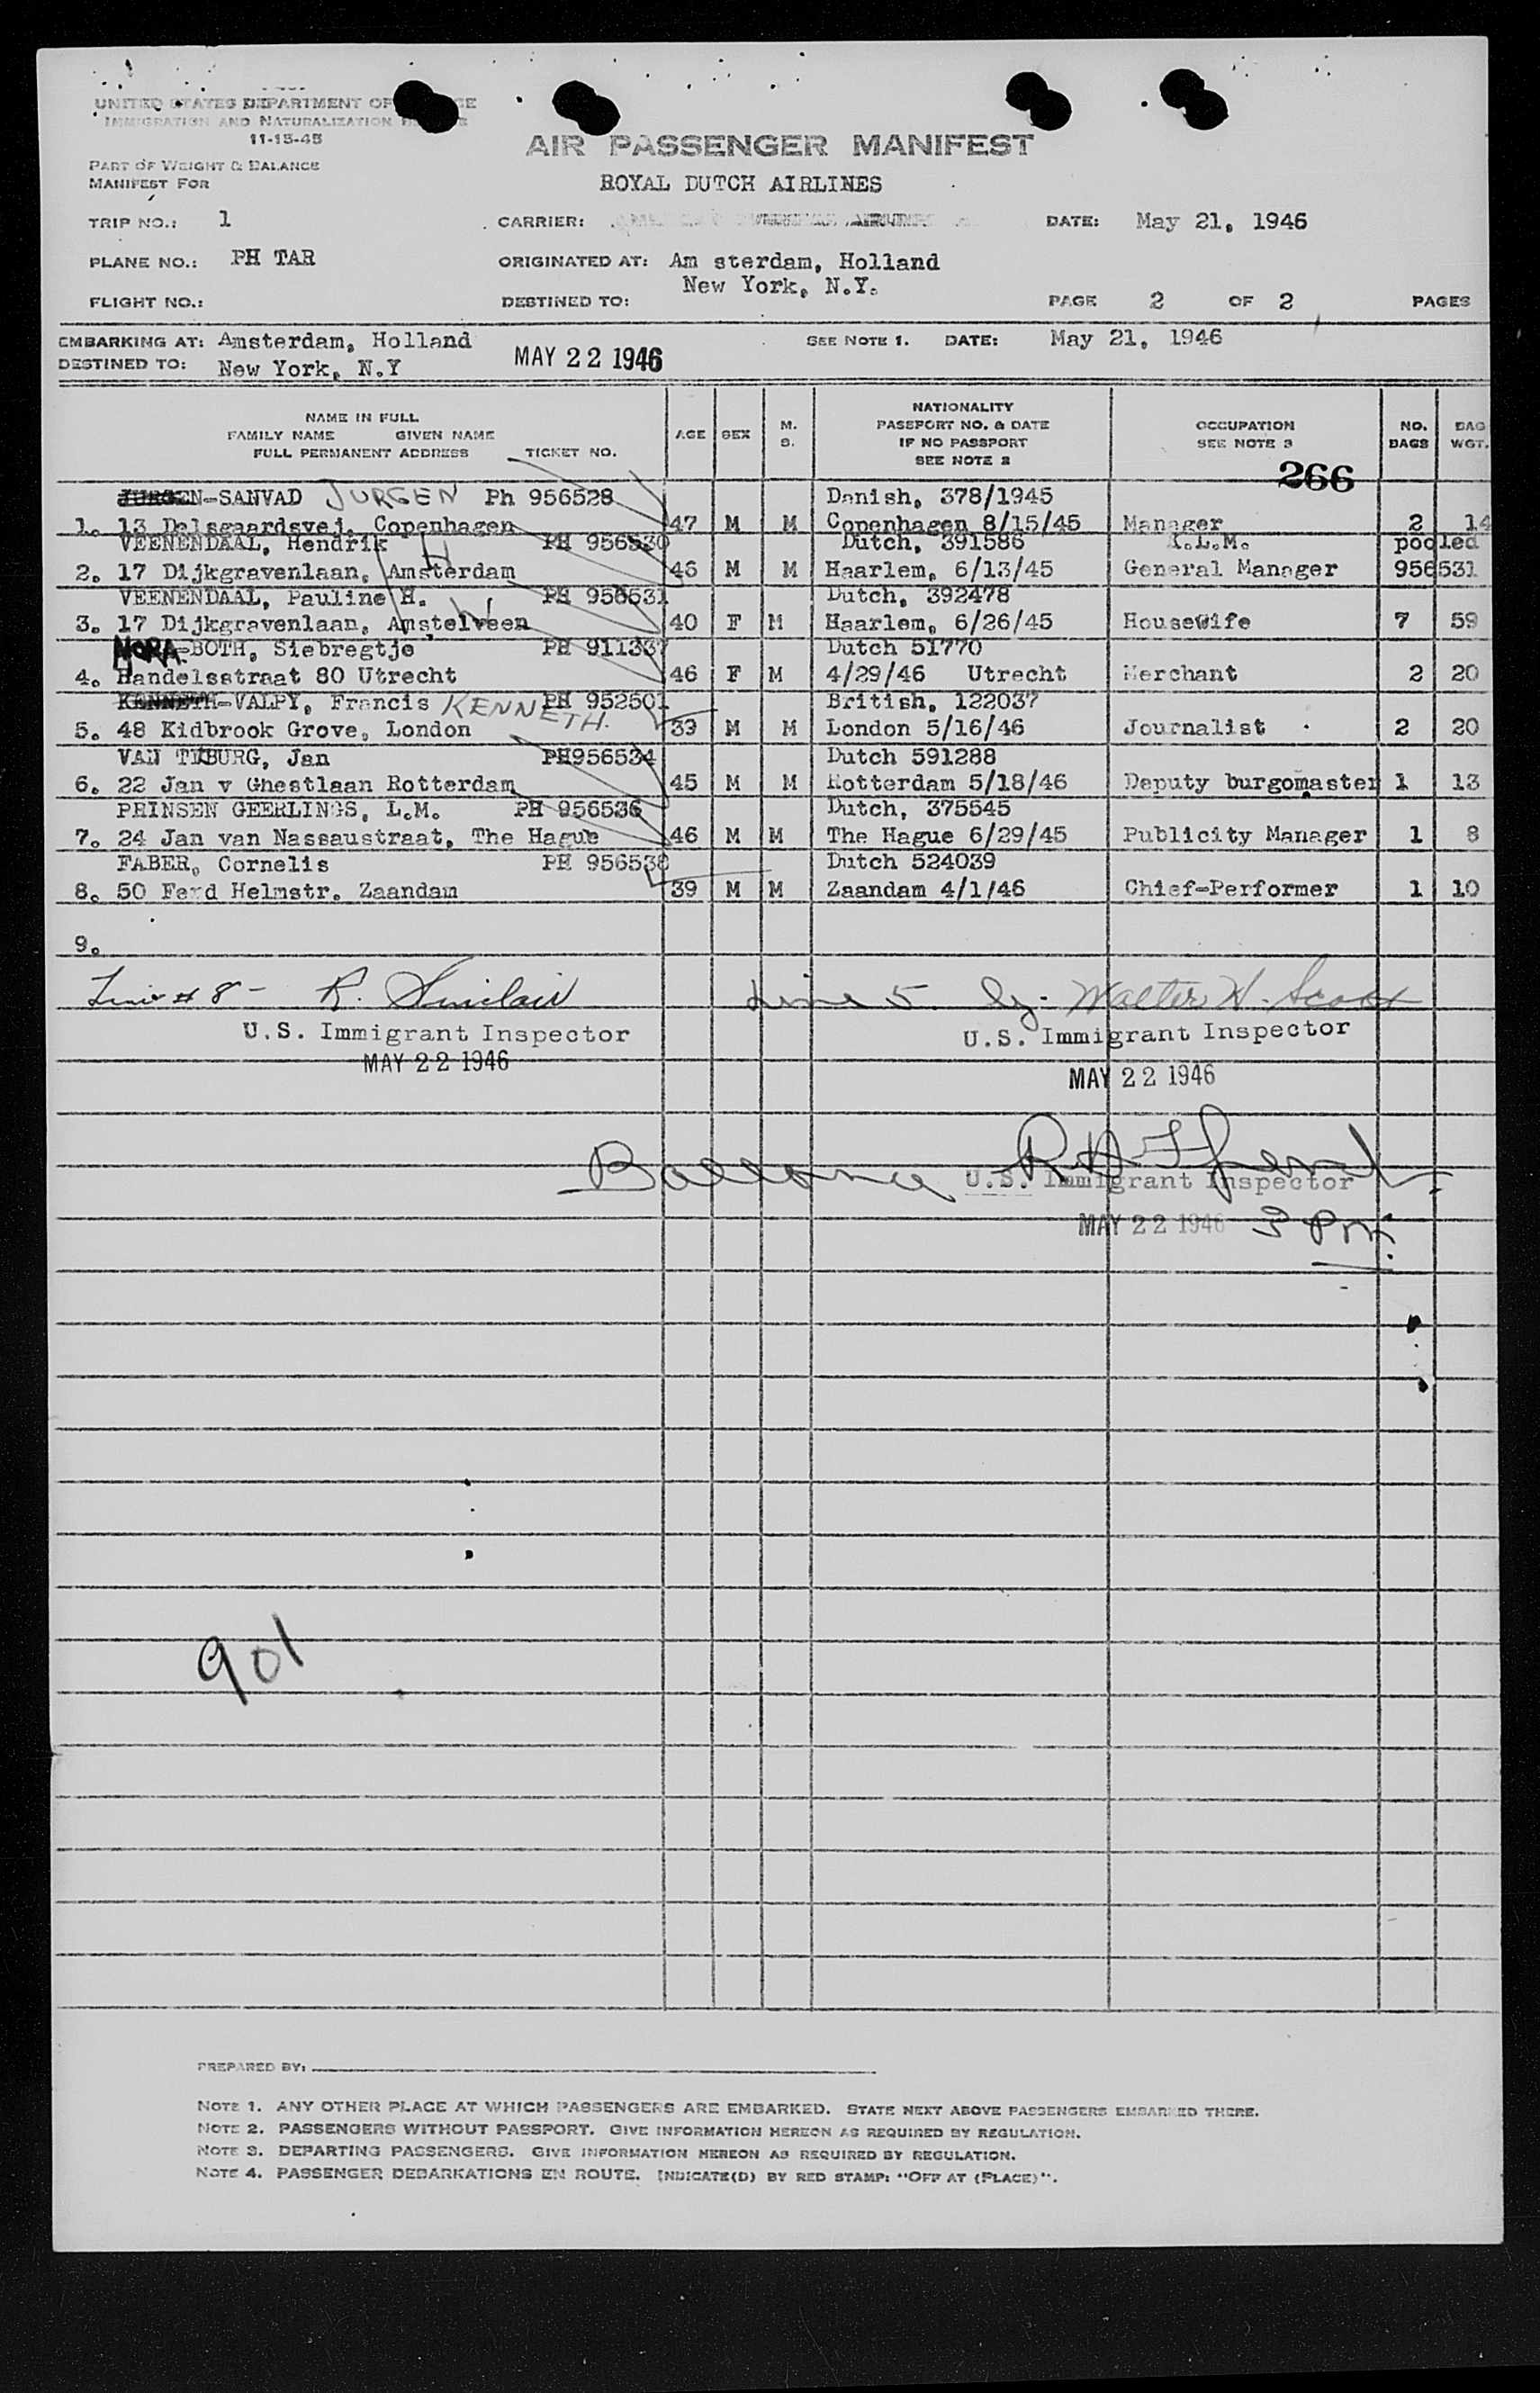 UNITED STATES DEPARTMENT OF
IMMIGRATION AND NATURALIZATION
11-15-45
AIR PASSENGER MANIFEST
PART OF WEIGHT & BALANCE
MANIFEST FOR
ROYAL DUTCH AIRLINES
TRIP NO.: 1 CARRIER: DATE: May 21, 1946
PLANE NO.: PH TAR ORIGINATED AT: Am sterdam, Holland
FLIGHT NO.: DESTINED TO: New York, N.Y. PAGE 2 OF 2 PAGES
EMBARKING AT: Amsterdam, Holland SEE NOTE 1. DATE: May 21, 1946
DESTINED TO: New York, N.Y MAY 22 1946
NAME IN FULL
FAMILY NAME GIVEN NAME
FULL PERMANENT ADDRESS TICKET NO. AGE SEX M. S. NATIONALITY PASSPORT NO. & DATE IF NO PASSPORT SEE NOTE 2 OCCUPATION SEE NOTE 3 NO. BAGS BAG WGT.
266
JURGEN-SANVAD JURGEN Ph 956528 Danish, 378/1945
1. 13 Delsgaardsvej, Copenhagen 47 M M Copenhagen 8/15/45 Manager 2 14
VEENENDAAL, Hendrik H PH 956530 Dutch, 391586 K.L.M. pooled
2. 17 Dijkgravenlaan, Amsterdam 46 M M Haarlem, 6/13/45 General Manager 956531
VEENENDAAL, Pauline H. PH 956531 Dutch, 392478
3. 17 Dijkgravenlaan, Amstelveen 40 F M Haarlem, 6/26/45 Housewife 7 59
NORA-BOTH, Siebregtje PH 911337 Dutch 51770
4. Handelsstraat 80 Utrecht 46 F M 4/29/46 Utrecht Merchant 2 20
KENNETH-VALPY, Francis KENNETH. PH 952501 British, 122037
5. 48 Kidbrook Grove, London 39 M M London 5/16/46 Journalist 2 20
VAN TKBURG, Jan PH956534 Dutch 591288
6. 22 Jan v Ghestlaan Rotterdam 45 M M Rotterdam 5/18/46 Deputy burgomaster 1 13
PRINSEN GEERLINGS, L.M. PH 956536 Dutch, 375545
7. 24 Jan van Nassaustraat, The Hague 46 M M The Hague 6/29/45 Publicity Manager 1 8
FABER, Cornelis PH 956538 Dutch 524039
8. 50 Ferd Helmstr. Zaandam 39 M M Zaandam 4/1/46 Chief-Performer 1 10
9.
Line # 8 - R. Sinclair Line 5 by. Walter H. Scott
U.S. Immigrant Inspector U.S. Immigrant Inspector
MAY 22 1946 MAY 22 1946
Balance
U.S. Immigrant Inspector
MAY 22 1946 3 PM.
901
PREPARED BY:
NOTE 1. ANY OTHER PLACE AT WHICH PASSENGERS ARE EMBARKED. STATE NEXT ABOVE PASSENGERS EMBARKED THERE.
NOTE 2. PASSENGERS WITHOUT PASSPORT. GIVE INFORMATION HEREON AS REQUIRED BY REGULATION.
NOTE 3. DEPARTING PASSENGERS. GIVE INFORMATION HEREON AS REQUIRED BY REGULATION.
NOTE 4. PASSENGER DEBARKATIONS EN ROUTE. INDICATE(D) BY RED STAMP: "OFF AT (PLACE)".